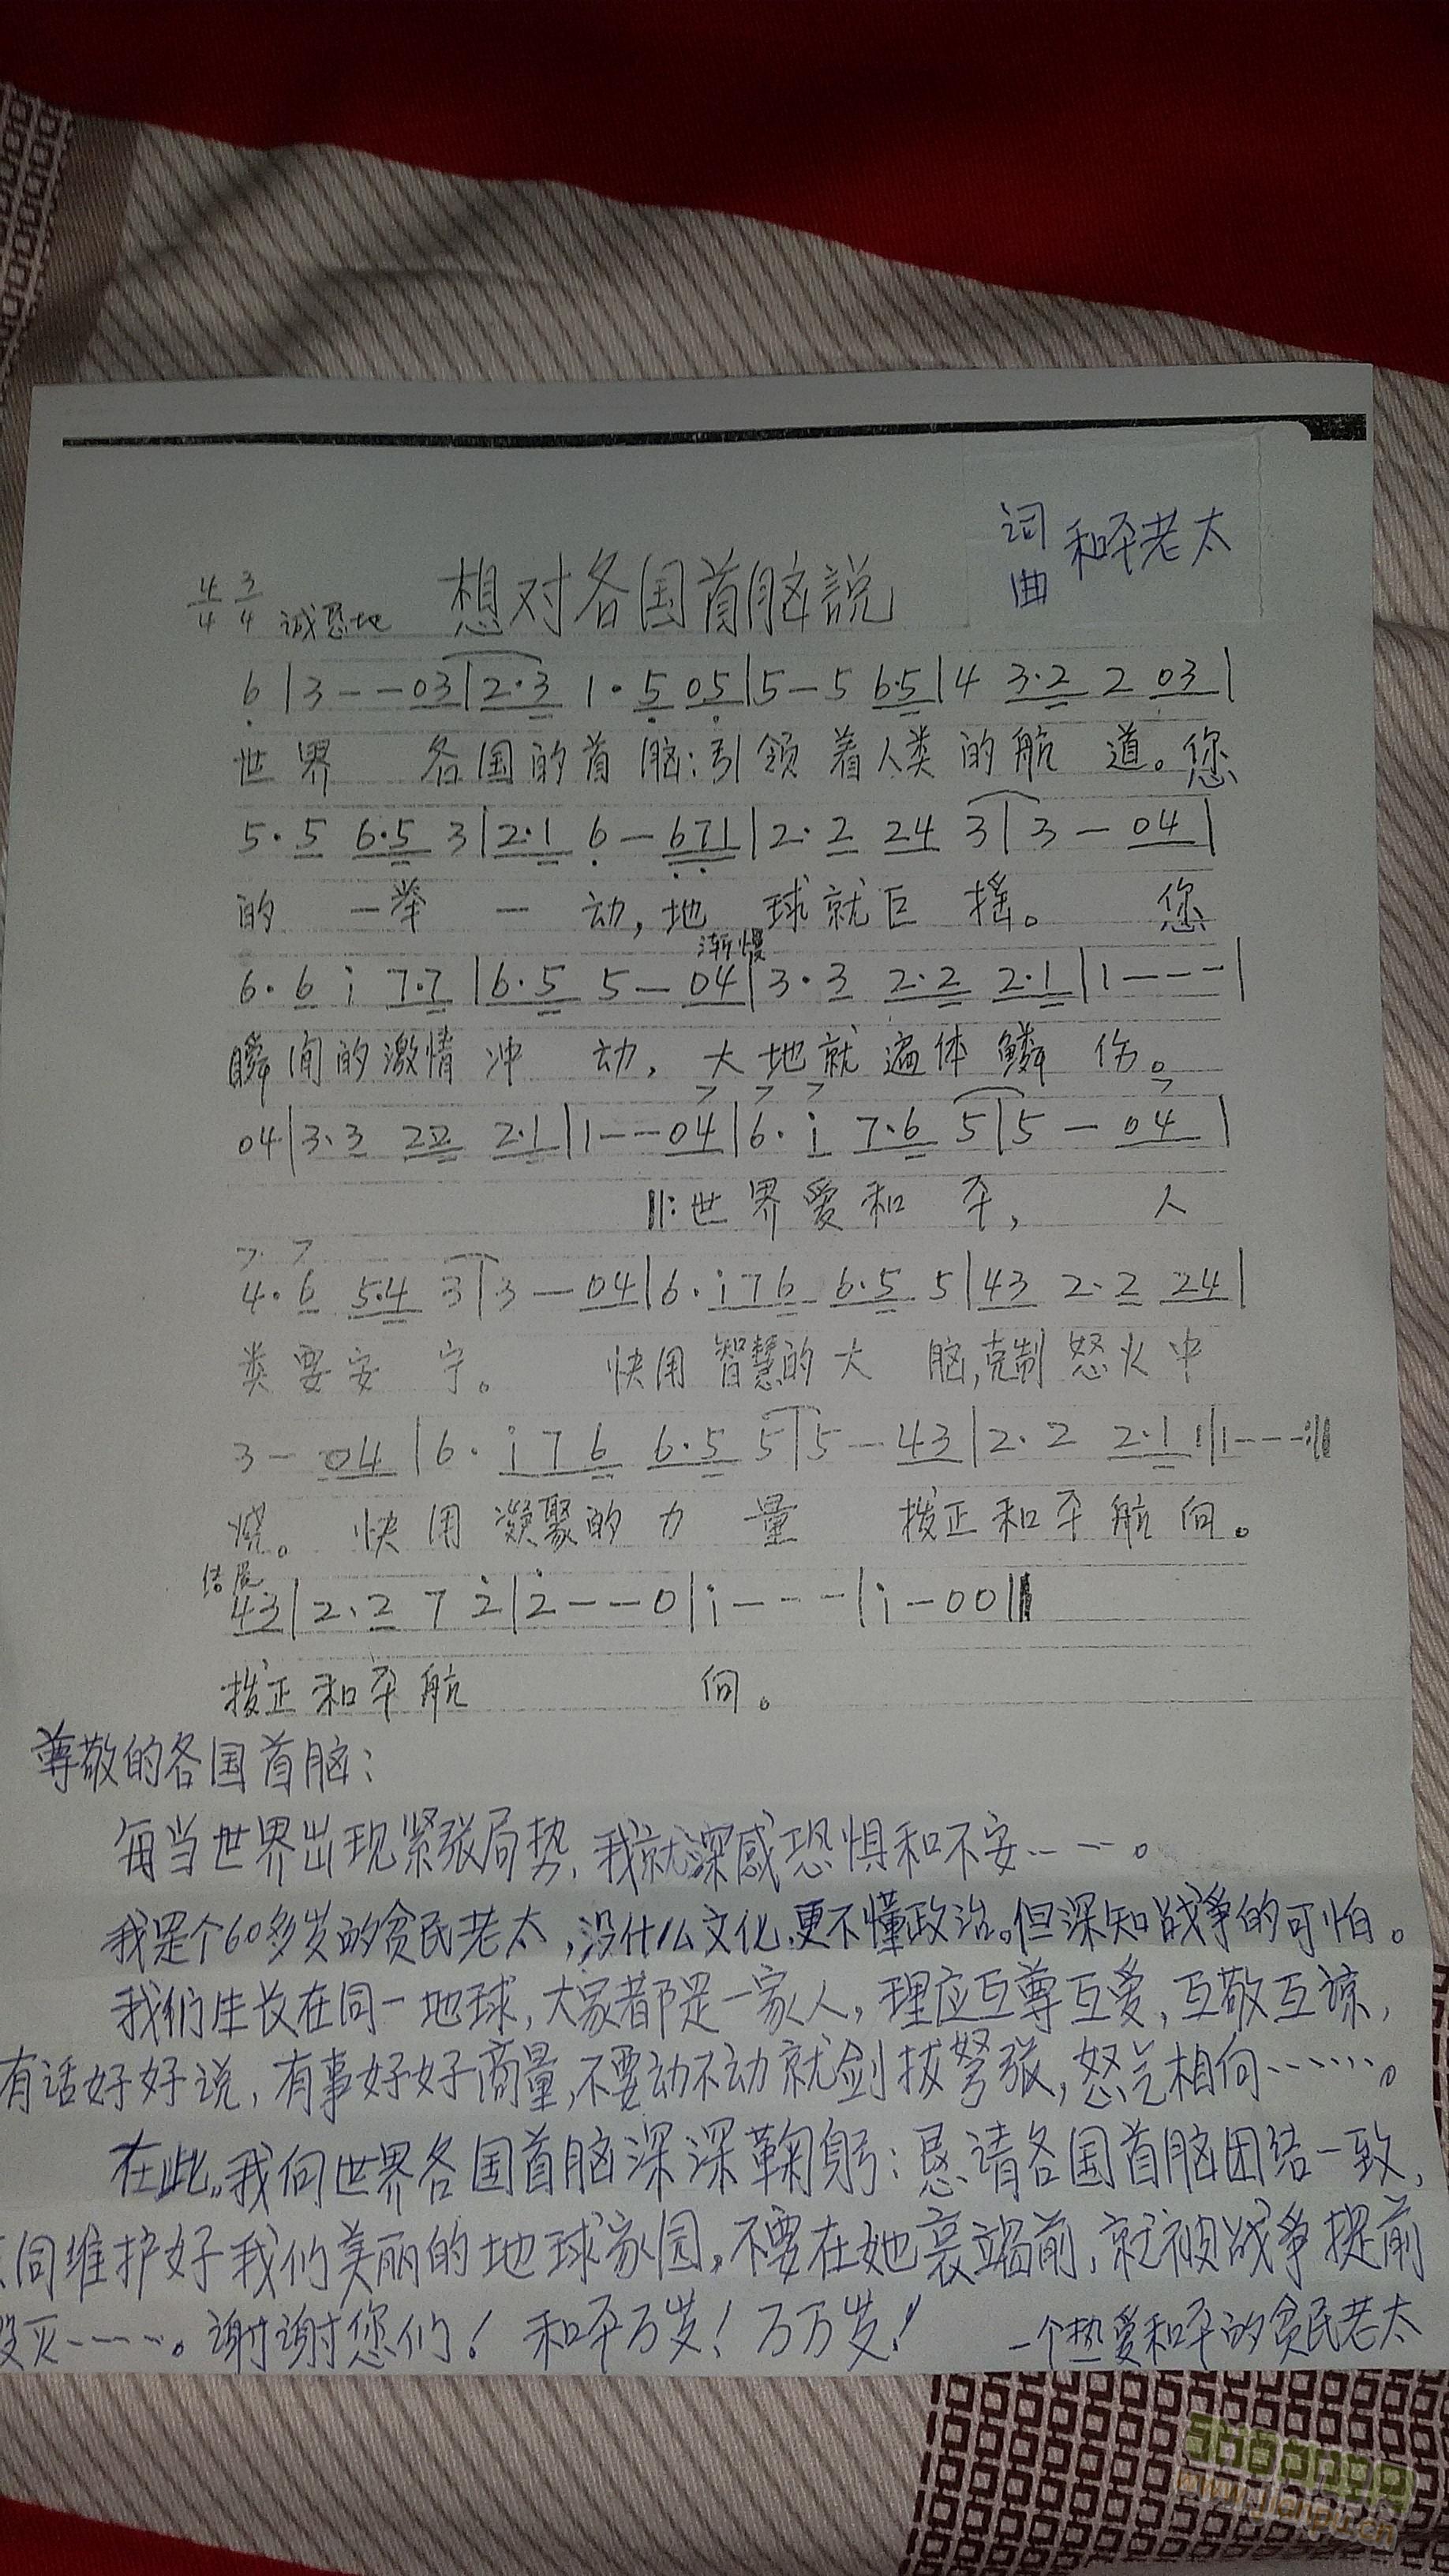 词 和平老太
曲
4/4 3/4 诚恳地 想对各国首脑説
6̣|3--03|2·3 1·5̣ 05̣|5-5 6·5|4 3·2 2 03|
世界 各国的首脑:引领着人类的航道。您
5·5 6·5 3|2·1 6̣-6̣7̣1|2·2 24 3|3-04|
的一举一动,地球就巨摇。您
渐慢
6·6 i 7·7|6·5 5-04|3·3 2·2 2·1|1---|
瞬间的激情冲动,大地就遍体鳞伤。
> > > >
04|3·3 22 2·1|1--04|6·i 7·6 5|5-04|
‖:世界爱和平,人
> >
4·6 5·4 3|3-04|6·i76 6·5 5|43 2·2 24|
类要安宁。快用智慧的大脑,克制怒火中
3-04|6·i76 6·5 5|5-43|2·2 2·1 1|1---:‖
烧。快用凝聚的力量 拨正和平航向。
结尾
43|2·2 7 2̇|2̇--0|i---|i-00‖
拨正和平航向。
尊敬的各国首脑:
每当世界出现紧张局势,我就深感恐惧和不安……。
我是个60多岁的贫民老太,没什么文化,更不懂政治。但深知战争的可怕。
我们生长在同一地球,大家都是一家人,理应互尊互爱,互敬互谅,
有话好好说,有事好好商量,不要动不动就剑拔弩张,怒气相向……。
在此,我向世界各国首脑深深鞠躬:恳请各国首脑团结一致,
同维护好我们美丽的地球家园,不要在她衰竭前,就被战争提前
毁灭……。谢谢您们!和平万岁!万万岁! 一个热爱和平的贫民老太
www.jianpu.cn